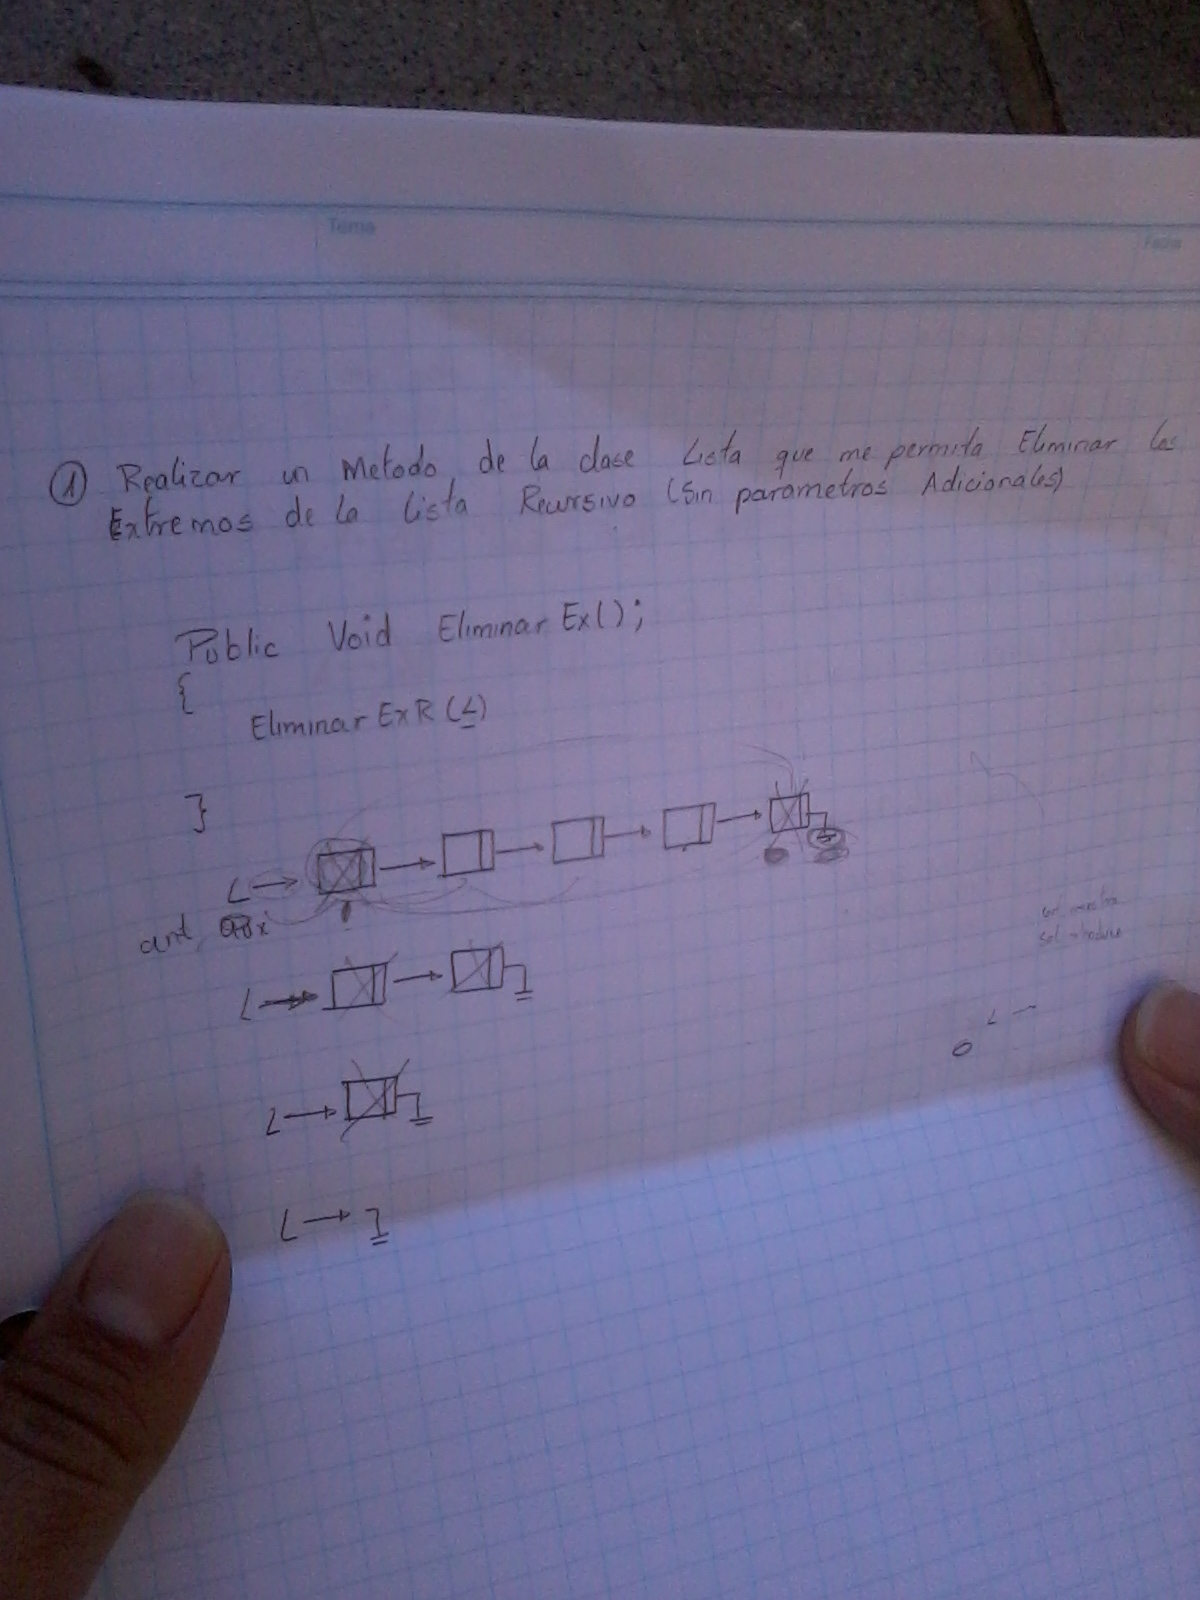 Tema
Fecha
① Realizar un Metodo de la clase Lista que me permita Eliminar los
Extremos de la Lista Recursivo (Sin parametros Adicionales)
Public Void Eliminar Ex();
{
Eliminar ExR (L)
}
L
ant,
L
L
L
L